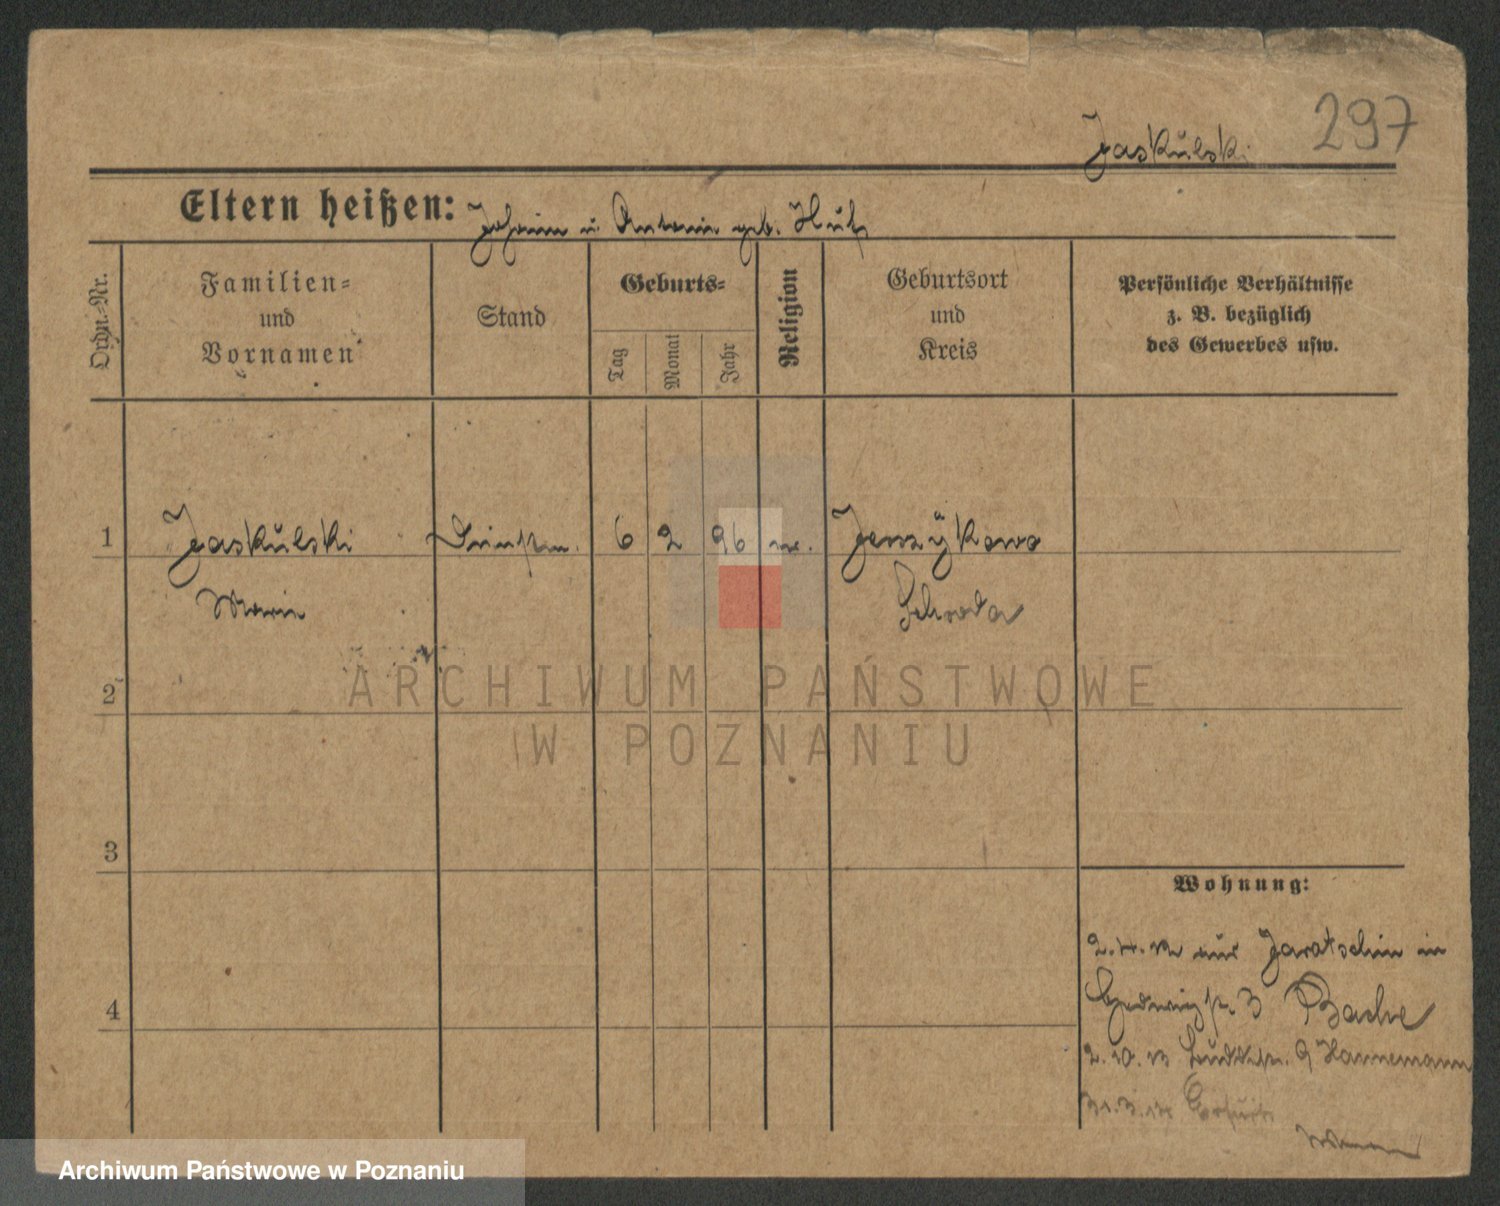 297
Jaskulski
Eltern heißen: Johann u. Antonie geb. Huth
Ordn.-Nr.
Familien-
und
Vornamen
Stand
Geburts-
Tag
Monat
Jahr
Religion
Geburtsort
und
Kreis
Persönliche Verhältnisse
z. B. bezüglich
des Gewerbes usw.
1 Jaskulski 6 2 96 Jerzykowo
Marie Schroda
2
3
4
Wohnung:
aus Jaratschin in
3 Bache
2.10.13 9 Hannemann
ARCHIWUM PAŃSTWOWE
W POZNANIU
Archiwum Państwowe w Poznaniu